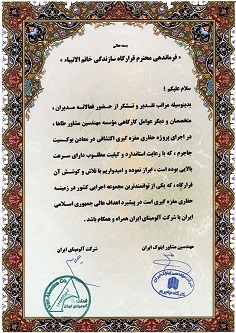 بسمه تعالی
« فرماندهی محترم قرارگاه سازندگی خاتم الانبیاء »
سلام علیکم :
بدینوسیله مراتب تقدیر و تشکر از حضور فعالانه مدیران ،
متخصصان و دیگر عوامل کارگاهی مؤسسه مهندسین مشاور طاها ،
در اجرای پروژه حفاری مغزه گیری اکتشافی در معادن بوکسیت
جاجرم ، که با رعایت استاندارد و کیفیت مطلوب دارای سرعت
بالایی بوده است ، ابراز نموده و امیدواریم با تلاش و کوشش آن
قرارگاه ، که یکی از توانمندترین مجموعه اجرایی کشور در زمینه
حفاری مغزه گیری است در پیشبرد اهداف عالی جمهوری اسلامی
ایران با شرکت آلومینای ایران همراه و همگام باشد .
مهندسین مشاور ایتوک ایران
شرکت آلومینای ایران